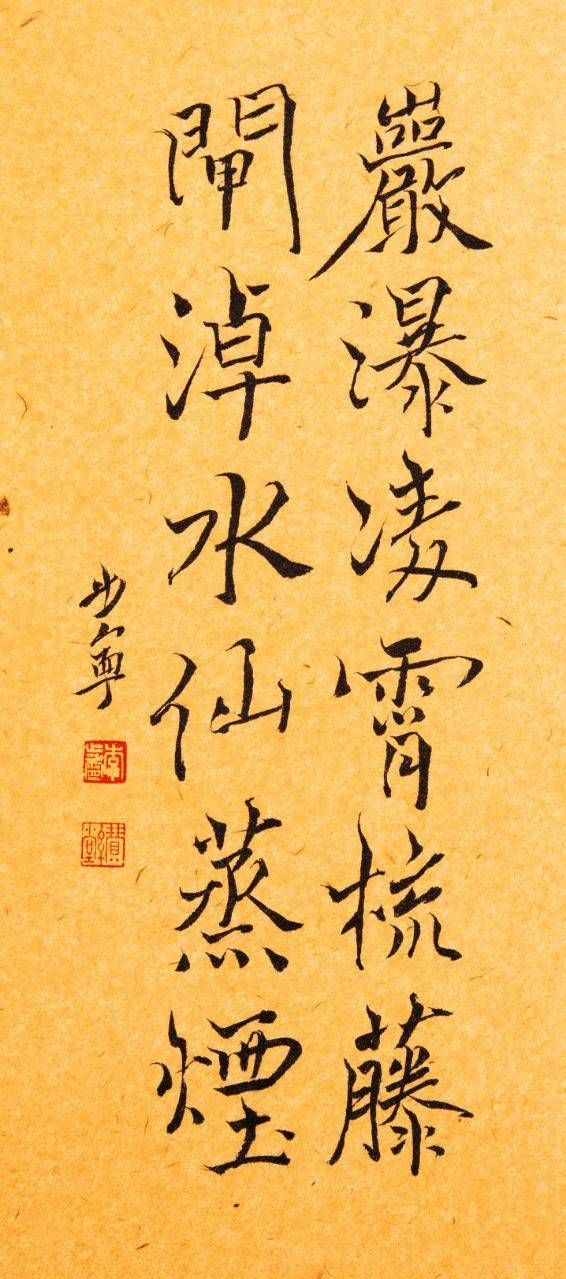 巖瀑凌霄梳藤
閘淖水仙蒸煙
寧